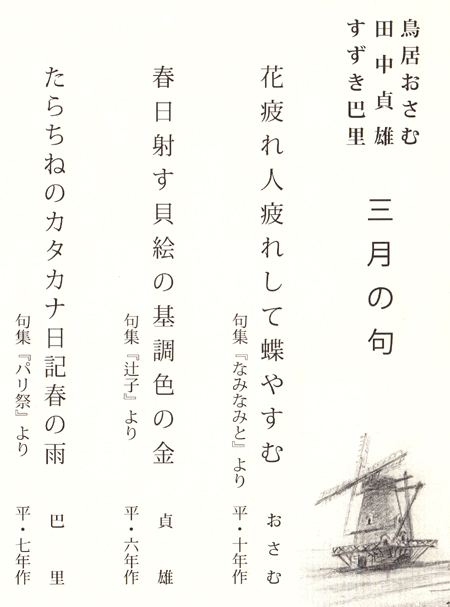 鳥居おさむ
田中貞雄
すずき巴里
三月の句
花疲れ人疲れして蝶やすむ
句集『なみなみと』より
おさむ
平・十年作
春日射す貝絵の基調色の金
句集『辻子』より
貞雄
平・六年作
たらちねのカタカナ日記春の雨
句集『パリ祭』より
巴里
平・七年作